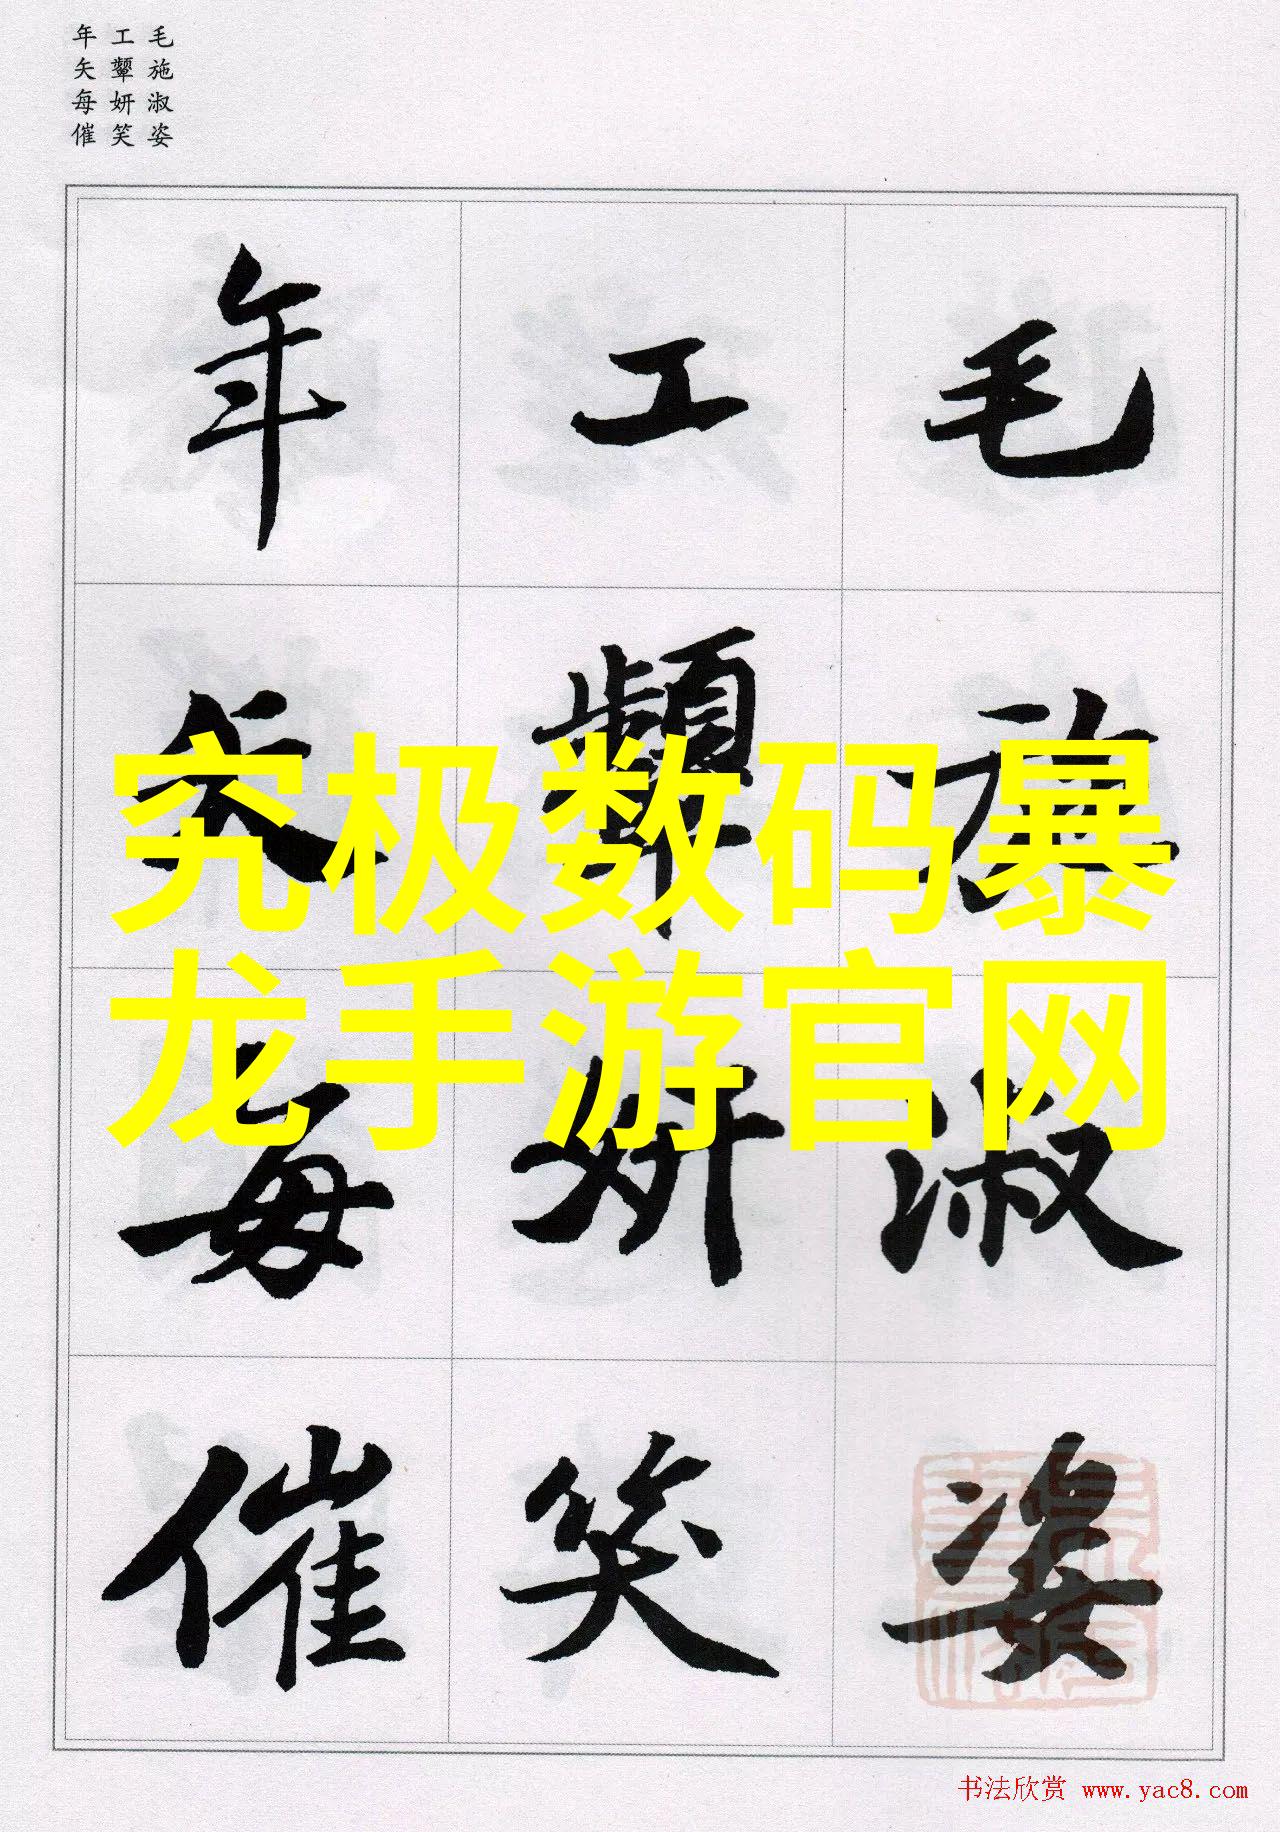 毛施淑姿
工颦妍笑
年矢每催
毛施淑姿
工颦妍笑
年矢每催
究极数码暴
龙手游官网
书法欣赏 www.yac8.com